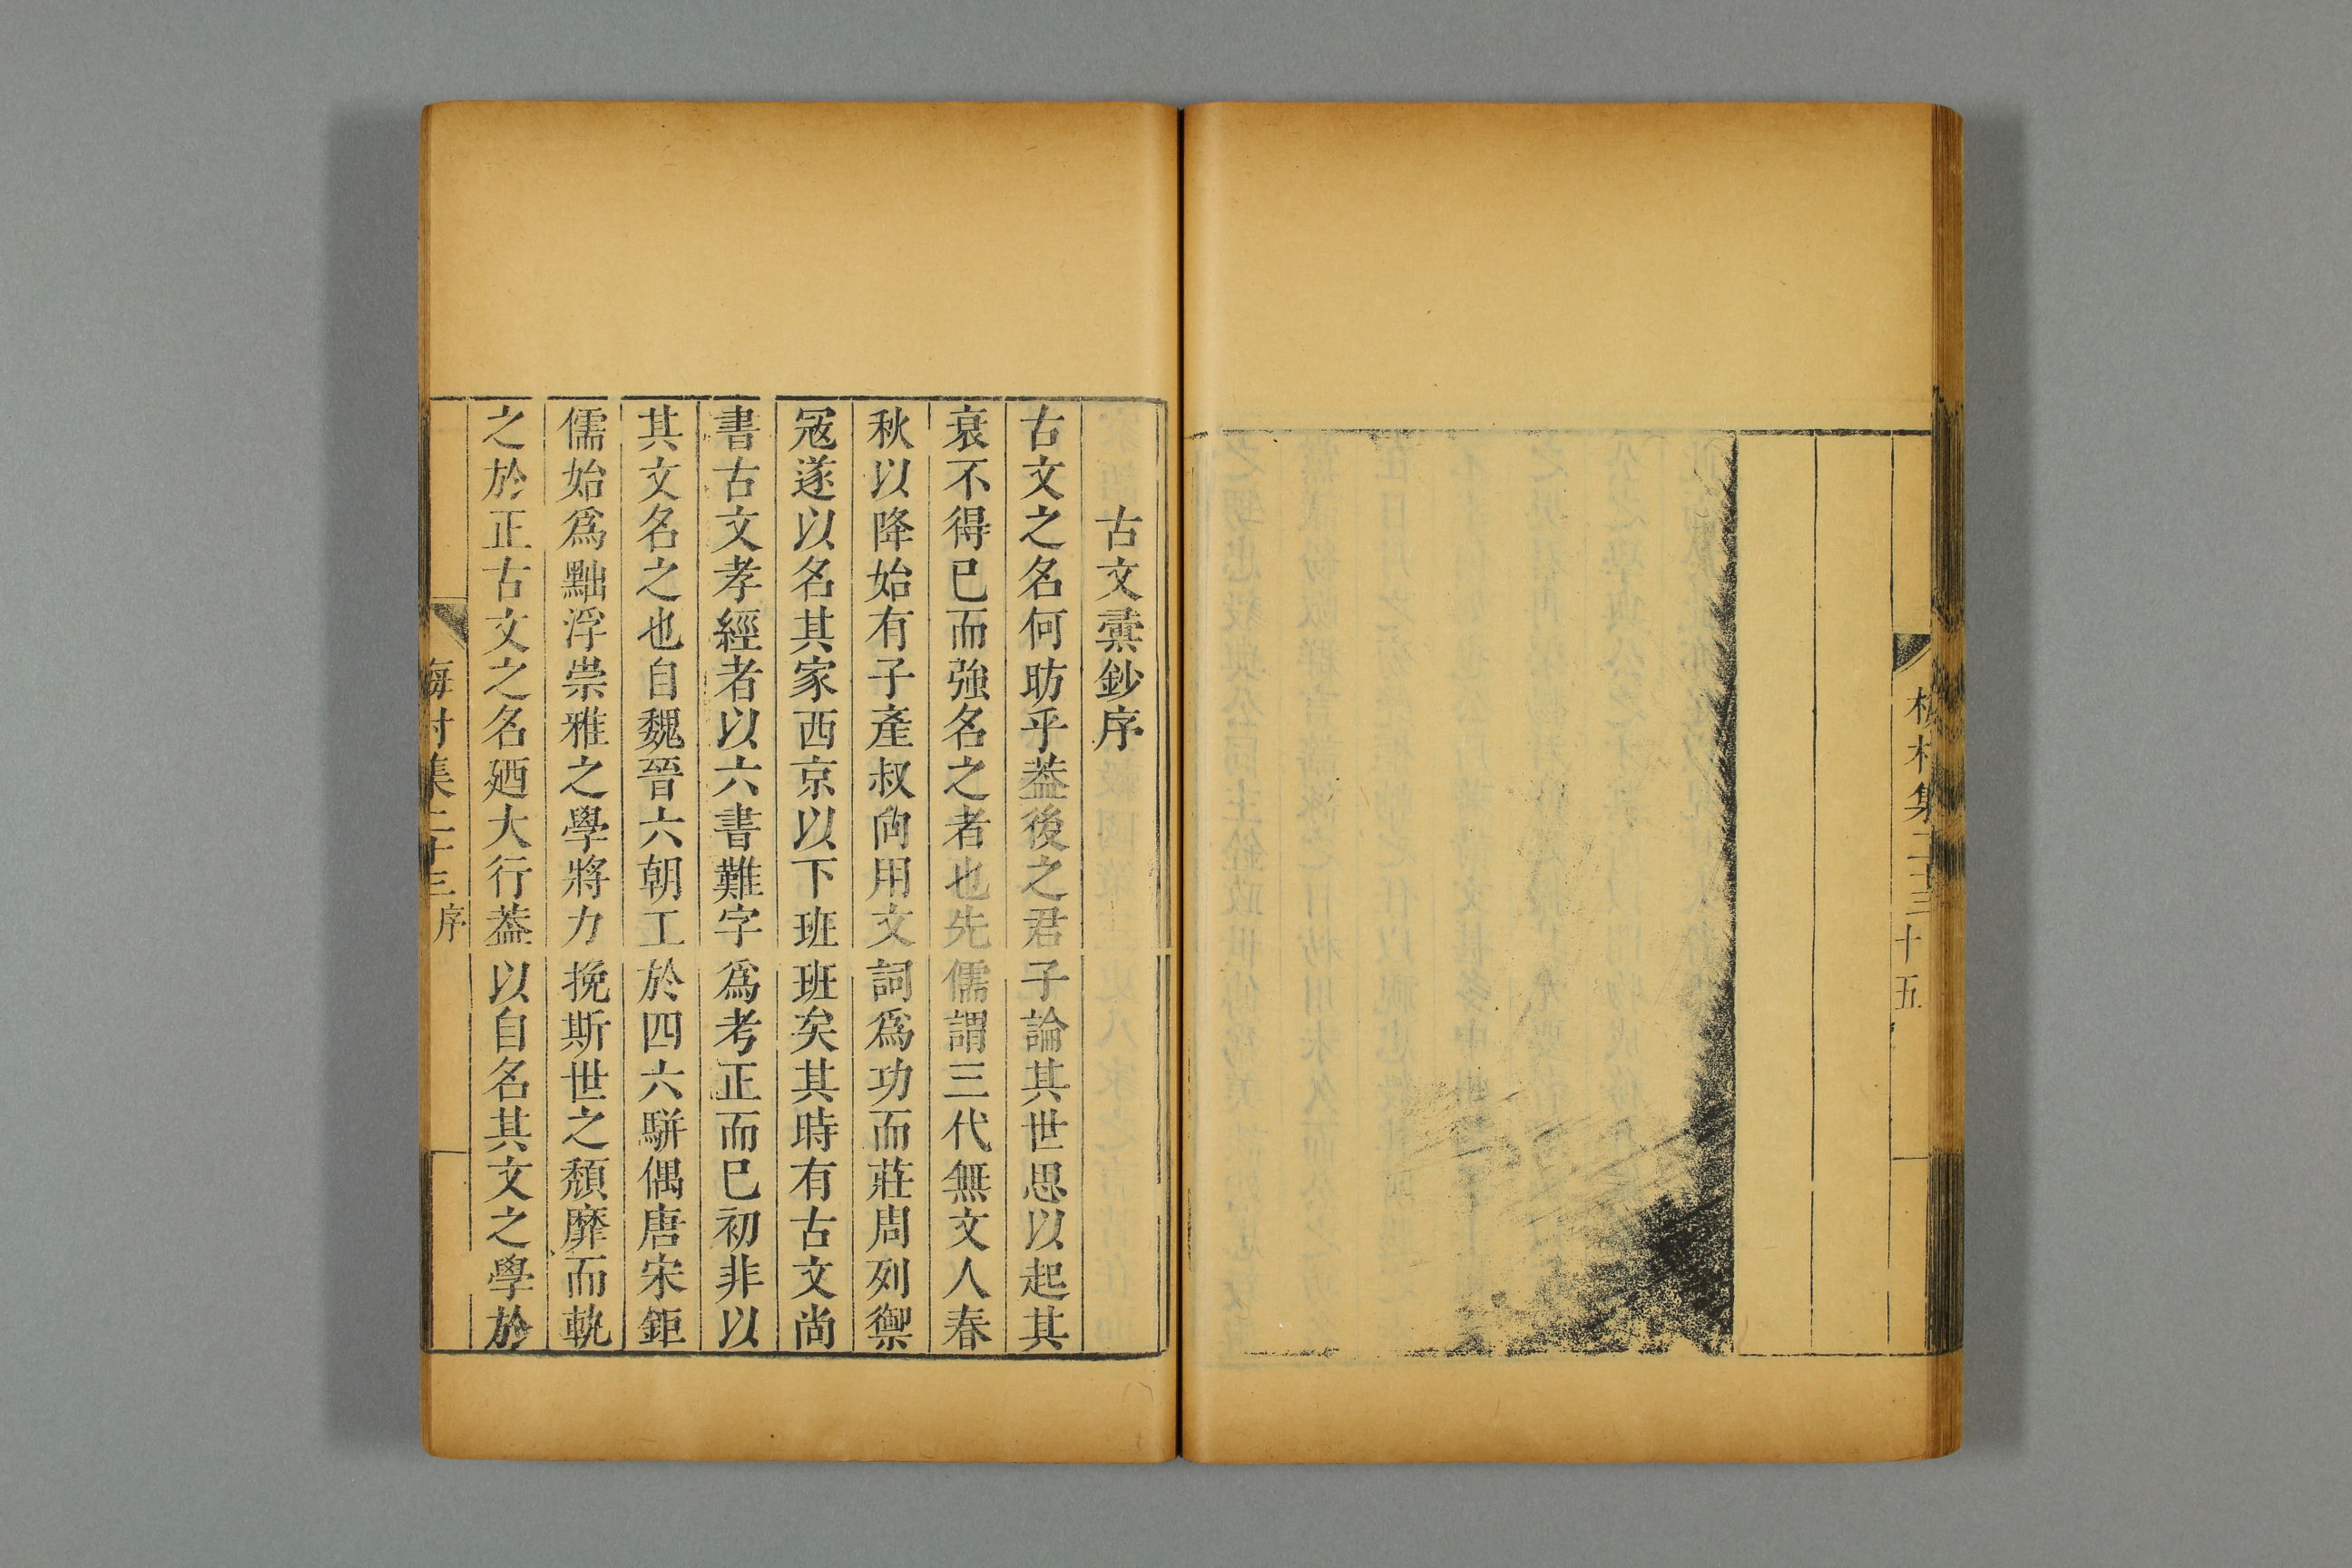 村集二十三
十五
古文彚鈔序
古文之名何昉乎葢後之君子論其世思以起其
衰不得已而強名之者也先儒謂三代無文人春
秋以降始有子產叔向用文詞爲功而莊周列禦
冦遂以名其家西京以下班班矣其時有古文尚
書古文孝經者以六書難字爲考正而已初非以
其文名之也自魏晉六朝工於四六駢偶唐宋鉅
儒始爲黜浮崇雅之學將力挽斯世之頹靡而軌
之於正古文之名廼大行葢以自名其文之學於
梅村集二十三
序